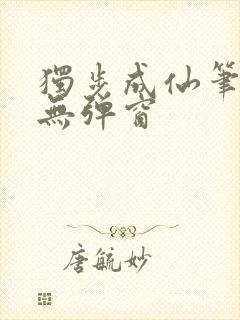 獨步成仙筆
無彈窗
唐毓妙